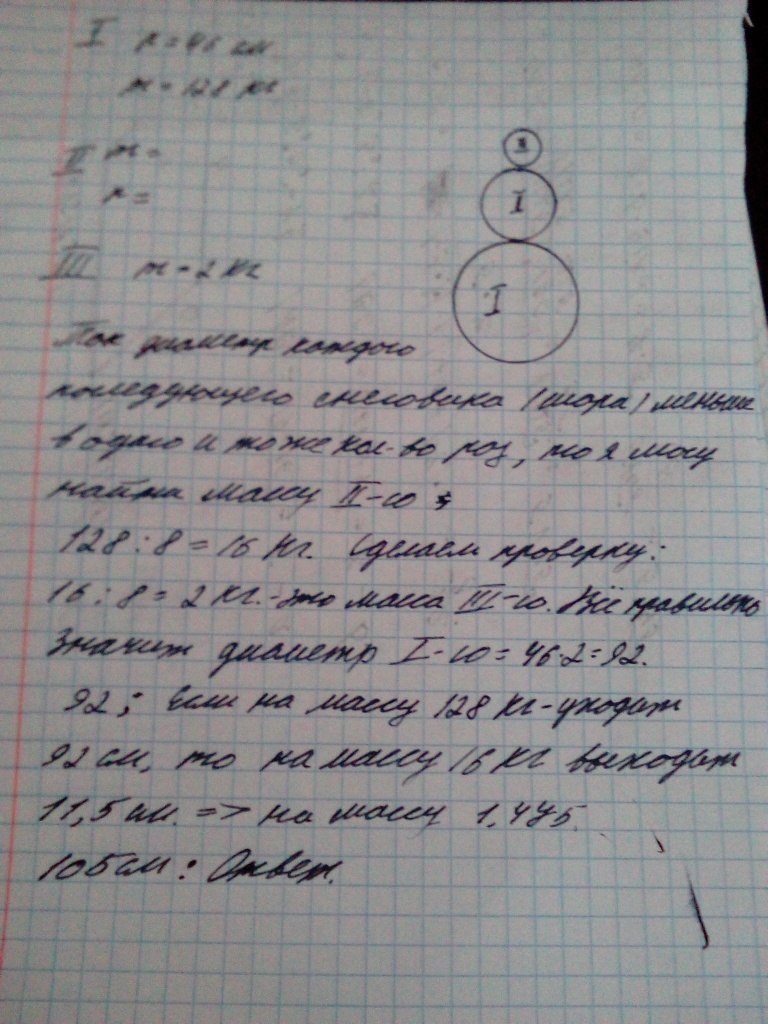 I r = 46 см
m = 128 кг
II m =
r =
III m = 2 кг
I
I
Так диаметр каждого
последующего снеговика (шара) меньше
в одно и тоже кол-во раз, то я могу
найти массу II-го
128 : 8 = 16 кг. Сделаем проверку:
16 : 8 = 2 кг. - это масса III-го. Всё правильно
Значит диаметр I-го = 46·2 = 92.
92; Если на массу 128 кг - уходит
92 см, то на массу 16 кг выходит
11,5 см. => на массу 1,475.
105 см : Ответ.